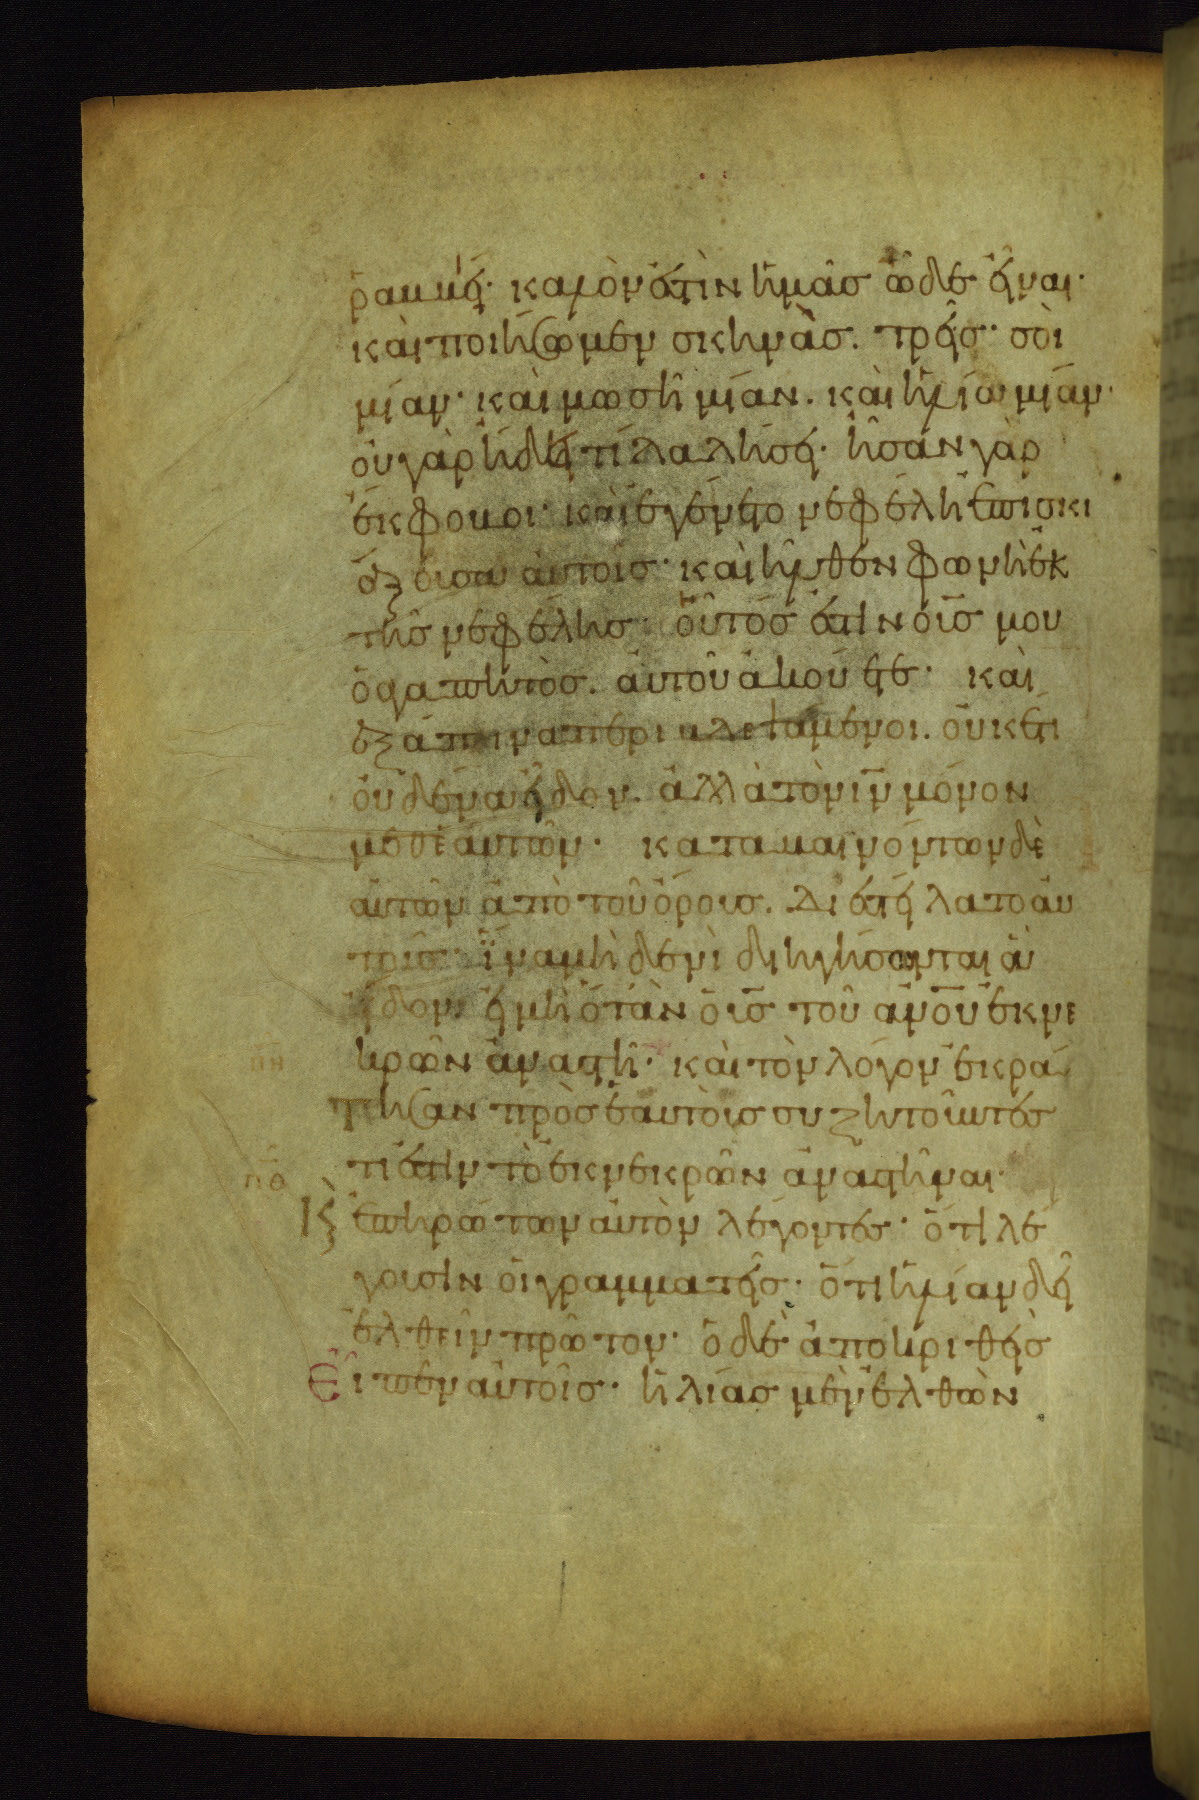 ῥαββεί· καλόν ἐστὶν ἡμᾶσ ὧδε εἶναι·
καὶ ποιήσωμεν σκηνὰσ. τρεῖσ· σοὶ
μίαν· καὶ μωσῆ μίαν. καὶ ἡλία μίαν·
οὐ γὰρ ἤδει τί λαλήσει· ἦσάν γὰρ
ἔκφοβοι· καὶ ἐγένετο νεφέλη ἐπισκι
άζουσα αὐτοῖσ· καὶ ἦλθεν φωνὴ ἐκ
τῆσ νεφέλησ· οὗτόσ ἐστιν ὁ υἱσ μου
ὁ ἀγαπητὸσ. αὐτοῦ ἀκούετε· καὶ
ἐξάπινα περιβλεψάμενοι. οὐκέτι
οὐδένα εἶδον. ἀλλὰ τὸν ιν μόνον
μεθ ἑαυτῶν· καταβαινόντων δὲ
αὐτῶν ἀπὸ τοῦ ὄρουσ. διεστείλατο αὐ
τοῖσ· ἵνα μὴ δενὶ διηγήσονται ἃ
εἶδον. εἰ μὴ ὅτὰν ὁ υσ τοῦ ανου ἐκ νε
κρῶν ἀναστῆ· καὶ τὸν λόγον ἐκρά
πη τησαν πρὸσ ἑαυτοὺσ συζητοῦντεσ
τί ἐστιν τὸ ἐκ νεκρῶν ἀναστῆναι·
πθ Κς ἐπηρώτων αὐτὸν λέγοντεσ· ὅτι λέ
γουσιν οἱ γραμματεῖσ· ὅτι ἡλίαν δεῖ
ἐλθεῖν πρῶτον· ὁ δὲ ἀποκριθεὶσ
Εἶπεν αὐτοῖσ· ἡλίασ μὲν ἐλθὼν